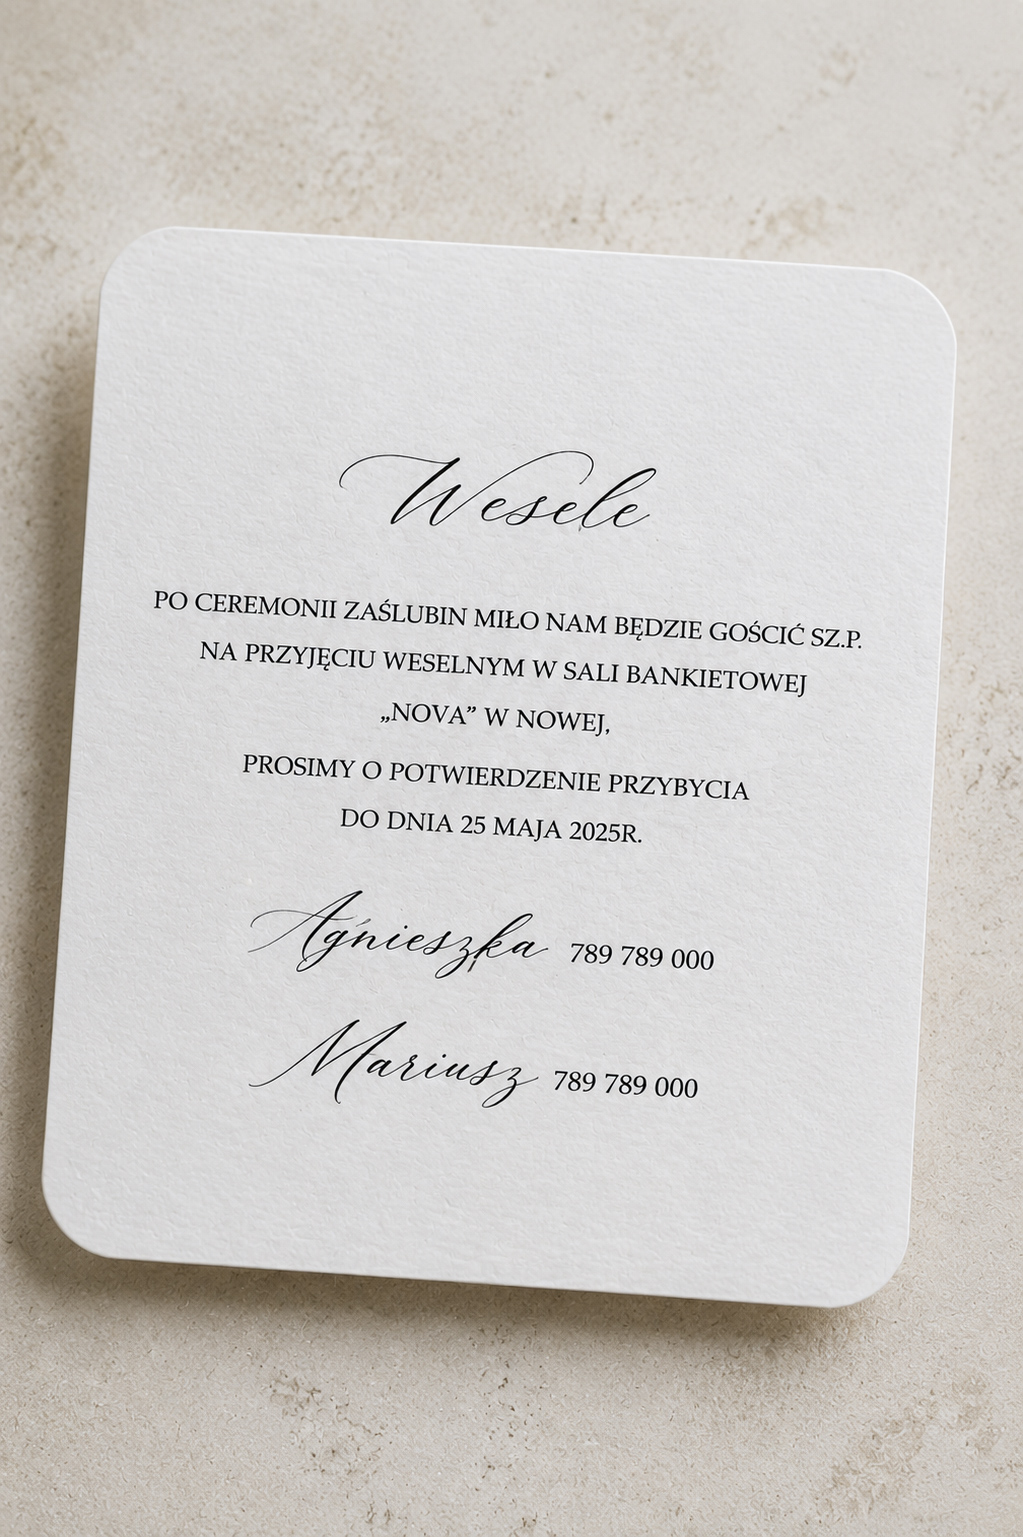 Wesele
PO CEREMONII ZAŚLUBIN MIŁO NAM BĘDZIE GOŚCIĆ SZ.P.
NA PRZYJĘCIU WESELNYM W SALI BANKIETOWEJ
„NOVA” W NOWEJ,
PROSIMY O POTWIERDZENIE PRZYBYCIA
DO DNIA 25 MAJA 2025R.
Agnieszka 789 789 000
Mariusz 789 789 000